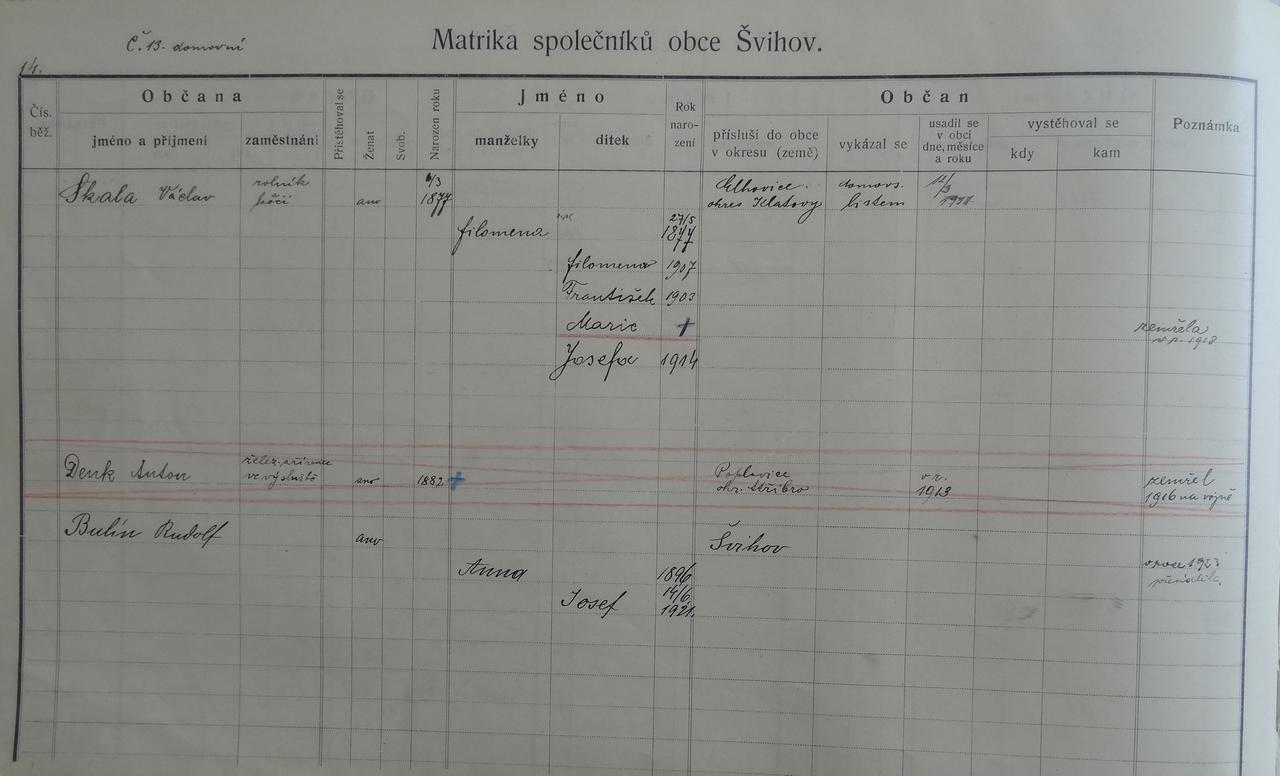 Č. 13. domovní
14.
Matrika společníků obce Švihov.
Čís. běž.
Občana
jméno a příjmení
zaměstnání
Přistěhoval se
Ženat
Svob.
Narozen roku
Jméno
manželky
dítek
Rok naro- zení
Občan
přísluší do obce v okresu (země)
vykázal se
usadil se v obci dne, měsíce a roku
vystěhoval se
kdy
kam
Poznámka
Skala Václav
rolník
ano
6/3
1877
okres Klatovy
domovs.
listem
filomena
27/5
1877
filomena 1907
František 1903
Marie †
zemřela
1918
Josefa 1914
Denk Anton
ve výslužbě
ano
1882 +
okr. Stříbro
v r.
1913
zemřel
1916 na vojně
Bulín Rudolf
ano
Švihov
Anna
1896
v roce 1923
Josef
14/6
1921.